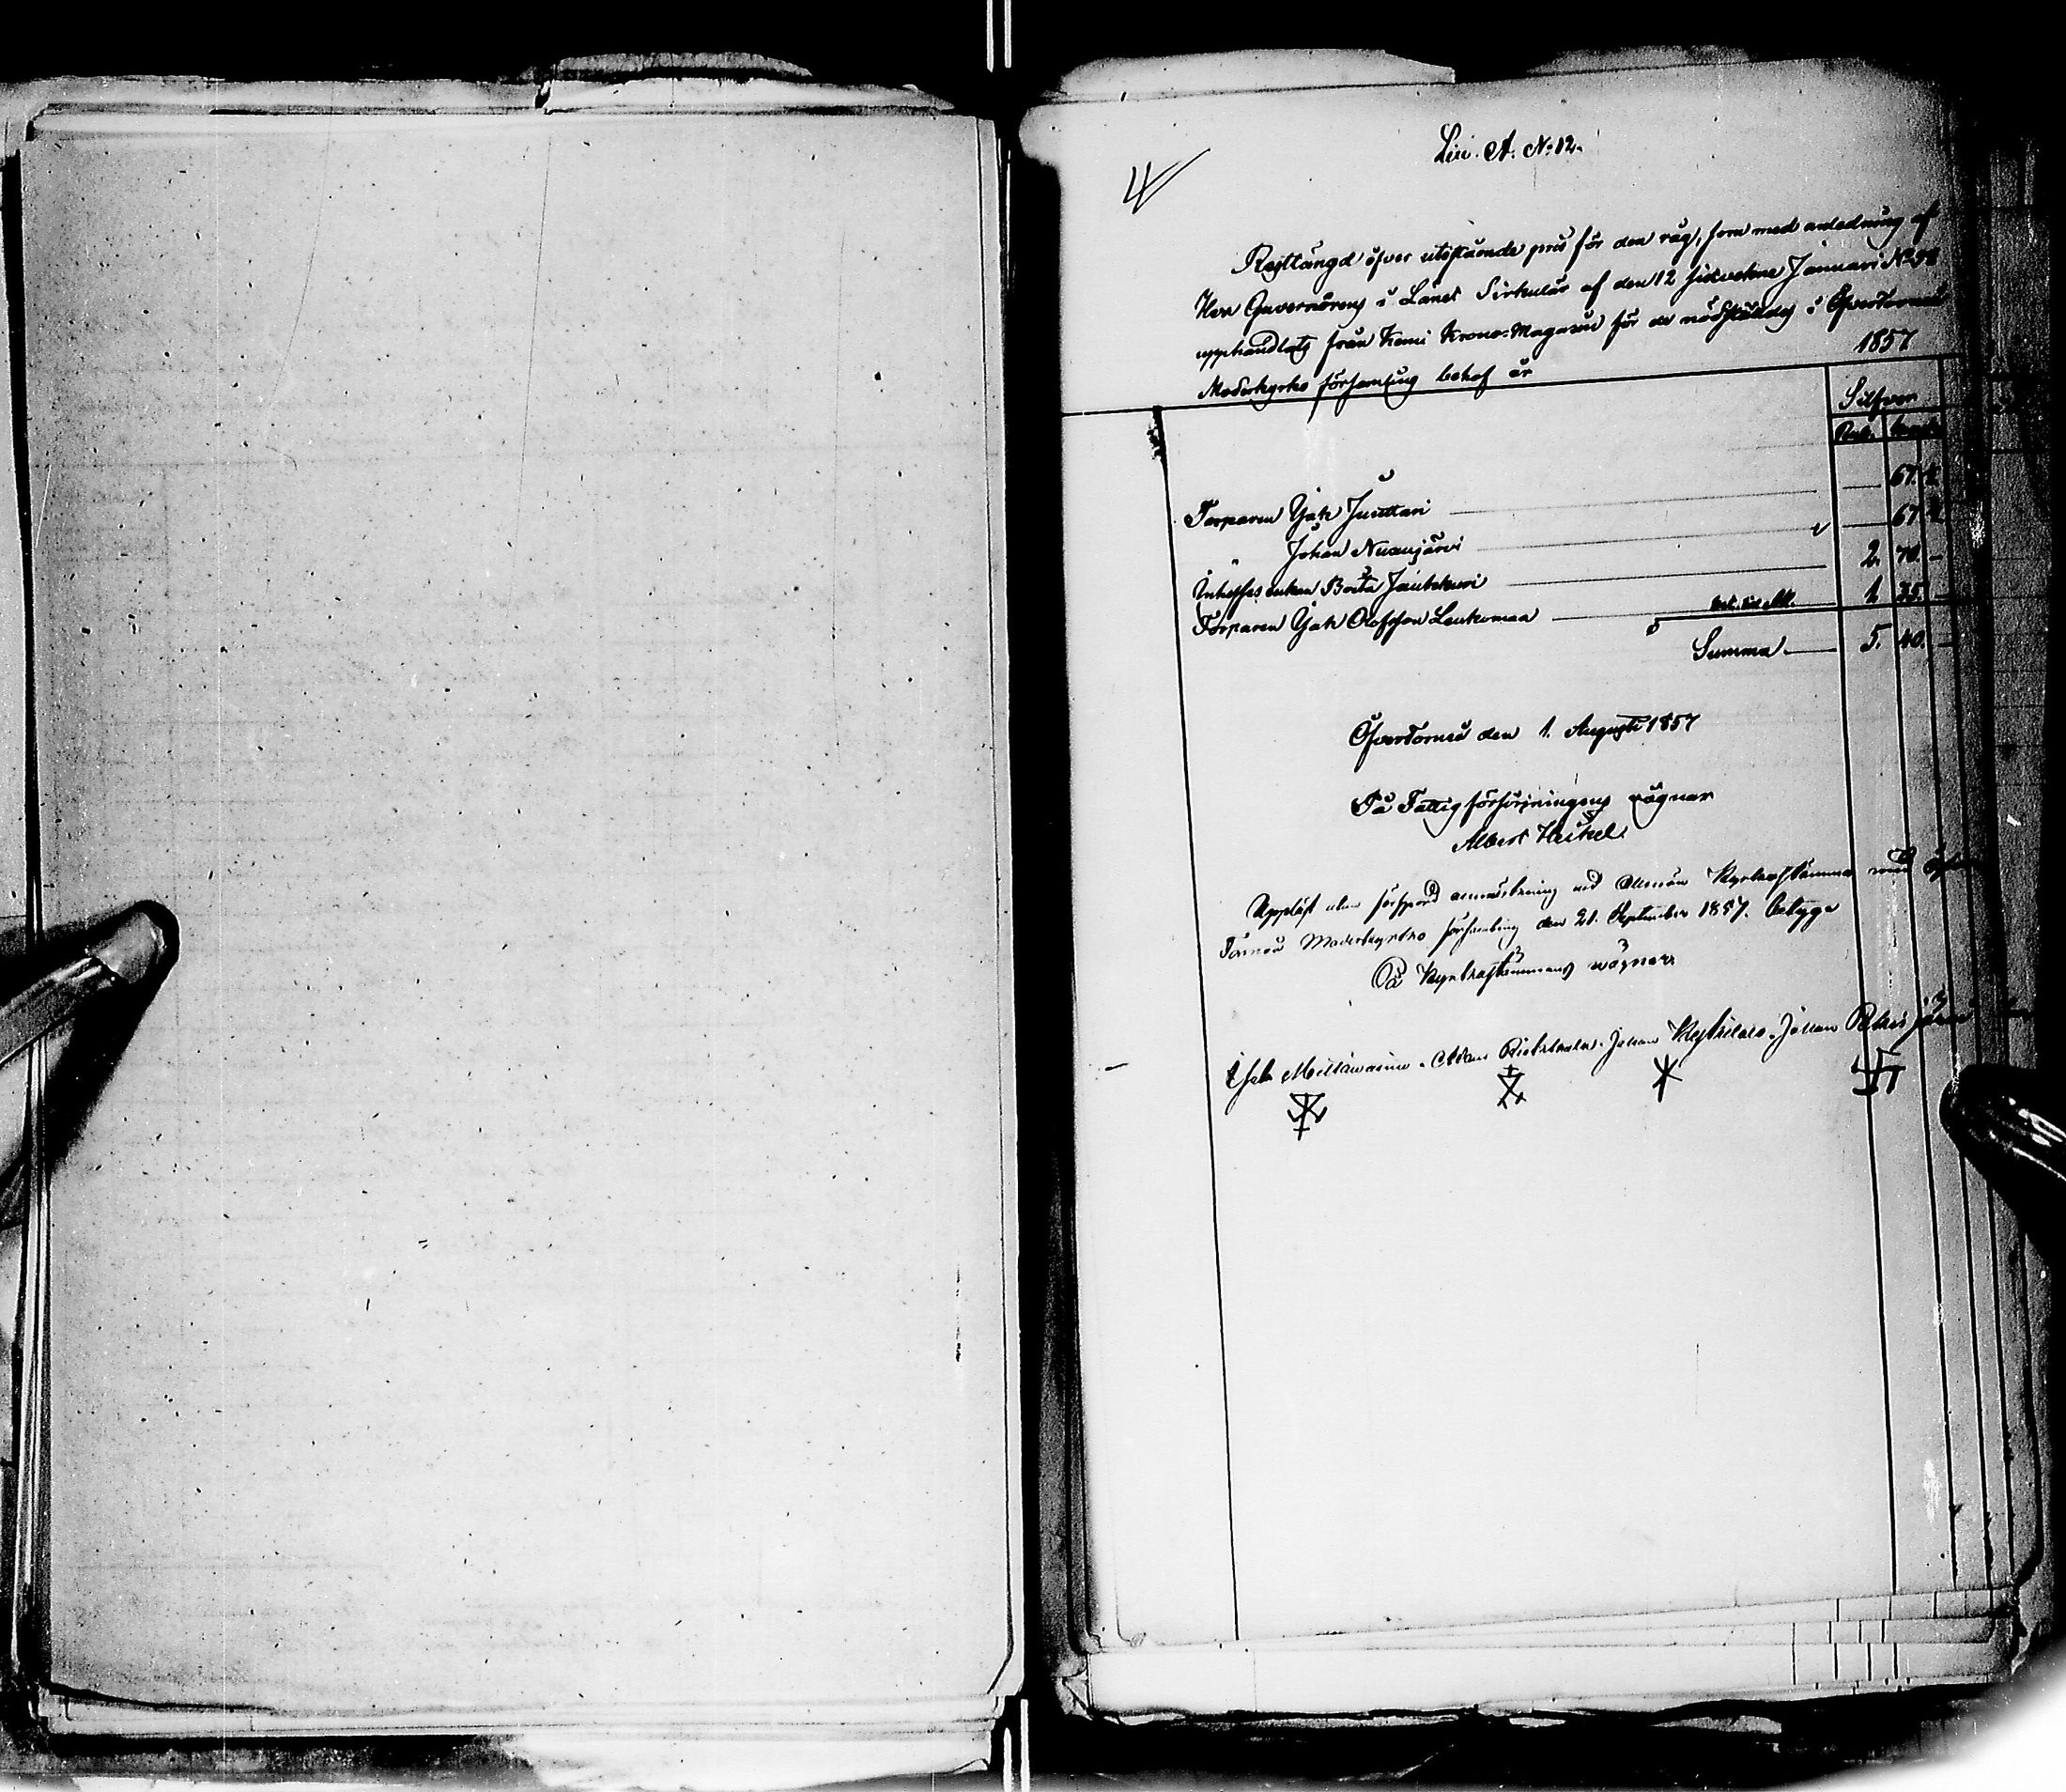 Litt. A. No: 12.
4
Restlängd öfver utestående pris för den råg, som med anledning af
Herr Guvernörens i Länet Sirkulär af den 12 sidvekne Januari No
upphandlats från Kemi Krono-Magasin för de nödställdes i Öfvertorneå
Moderkyrko församling behof år 1857
Silfver
Rub. Kop.
Torparen Isak Junttari — 67. ½
" Johan Nuanjärvi — 67. ½
Inhyses enkan Brita 2. 70. —
Torparen Isak Olofsson Laukomaa 1. 35. —
Summa — 5. 40. —
Öfvertorneå den 1. Augusti 1857
På Fattigförsörjningens vägnar
Albert Heikel.
Uppläst utan förspord anmärkning vid allmän Kyrkostämma med Öfver
Torneå Moderkyrko församling den 21. September 1857. betyga
På Kyrkostämmans vägnar
Isak Johan Johan